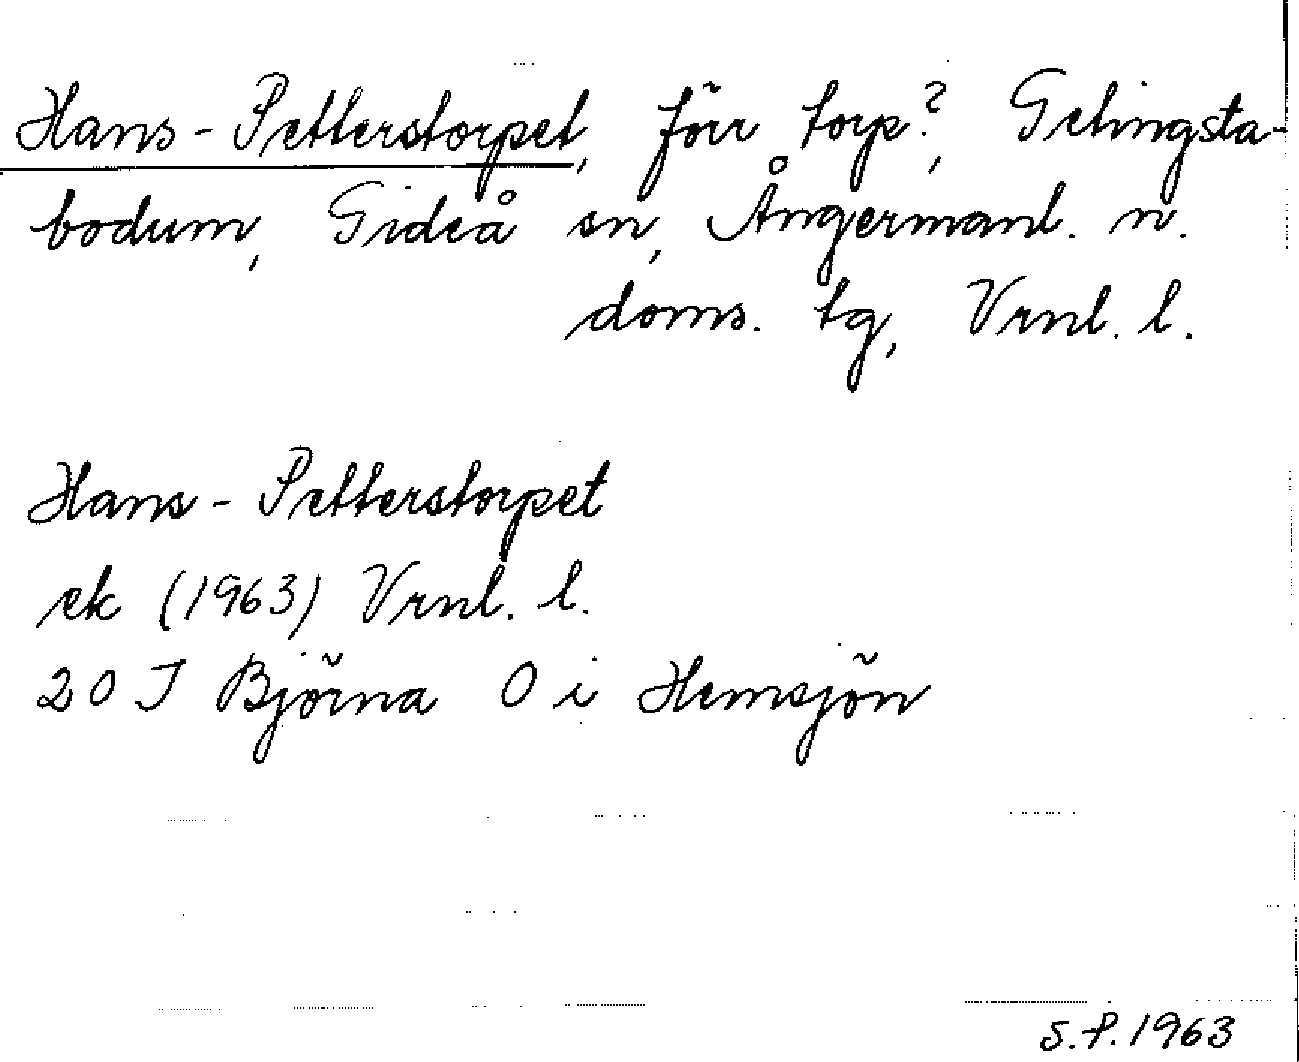 Hans-Petterstorpet, förr torp?, Getingsta-
bodum, Gideå sn, Ångermanl. n.
doms. tg, Vrnl. l.
Hans-Petterstorpet
ek (1963) Vrnl. l.
20 I Björna O i Hemsjön
S.P. 1963